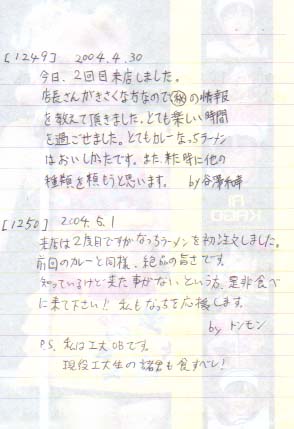 [1249] 2004.4.30
今日、2回目来店しました。
店長さんがきさくな方なので㊙の情報
を教えて頂きました。とても楽しい時間
を過ごせました。とてもカレーなっちラーメン
はおいしかたです。また来た時に他の
種類を頼もうと思います。 by谷澤
[1250] 2004.5.1
来店は2度目ですがなっちラーメンを初注文しました。
前回のカレーと同様、絶品の旨さです。
知っているけど来た事がないという方、是非食べ
に来て下さい!! 私もなっちを応援します。
by トンモン
P.S. 私は工大OBです。
現役工大生の諸君も食すべし!